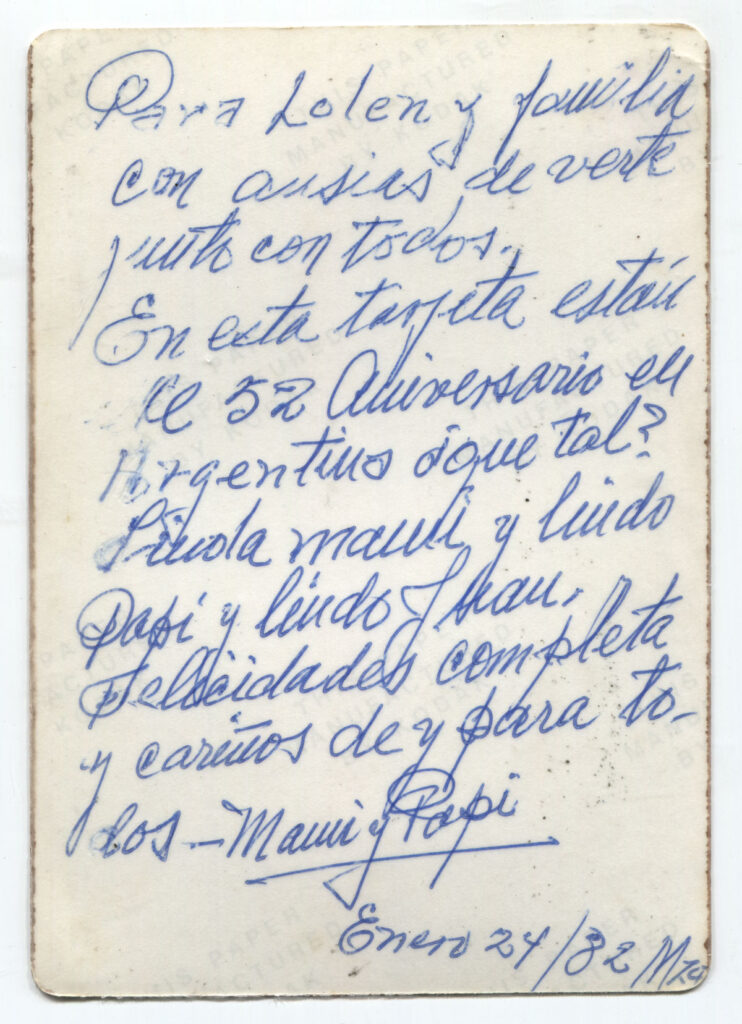 Para Lolen y familia
con ansias de verte
junto con todos.
En esta tarjeta están
el 52 Aniversario en
Argentina ¿que tal?
Linda mami y lindo
Papi y lindo Juan.
Felicidades completa
y cariños de y para to-
dos - Mami y Papi
Enero 24/82
THIS PAPER
MANUFACTURED
BY KODAK